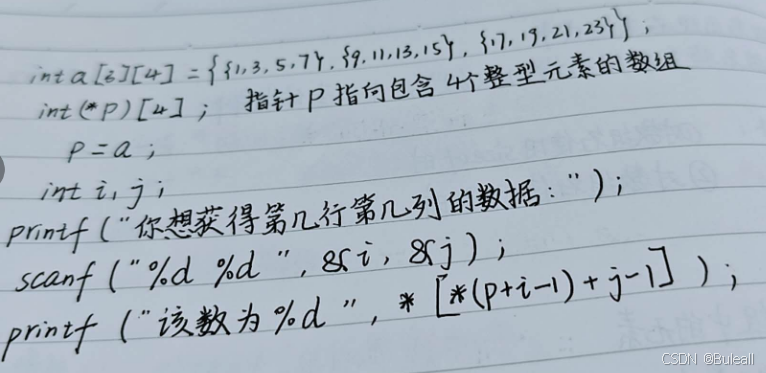 int a[3][4] = {{1,3,5,7}, {9,11,13,15}, {17,19,21,23}};
int (*p)[4]; 指针p指向包含4个整型元素的数组
p=a;
int i, j;
printf ("你想获得第几行第几列的数据:");
scanf ("%d %d ", &i, &j);
printf ("该数为%d ", *[*(p+i-1)+j-1]);
CSDN @Buleall